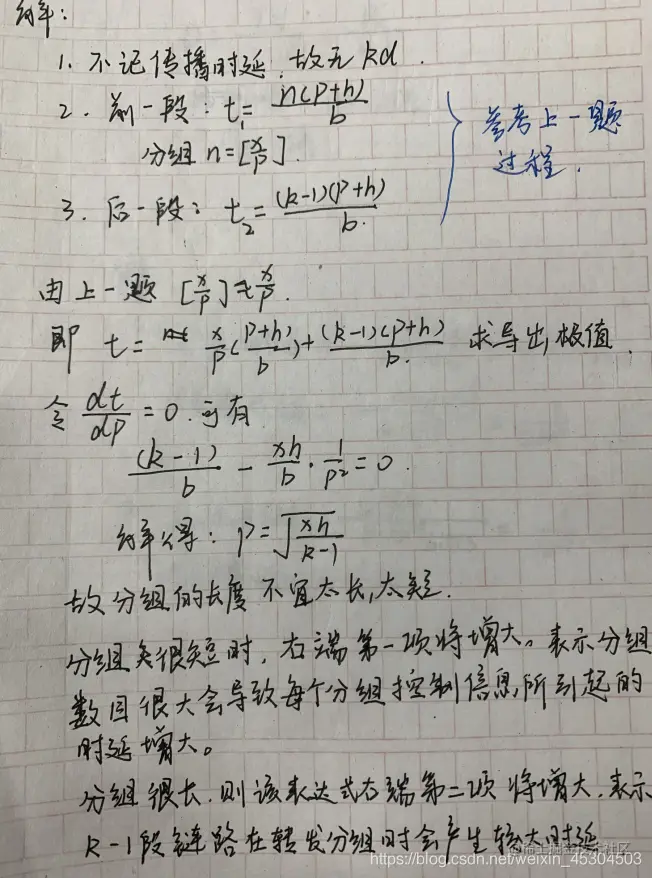 解:
1. 不记传播时延, 故无 kd.
2. 前一段: t₁ = n(p+h)/b
分组 n=[x/p].
3. 后一段: t₂ = (k-1)(p+h)/b.
参考上一题
过程.
由上一题 [x/p]≈x/p.
即 t = x/p((p+h)/b)+(k-1)(p+h)/b. 求导出极值.
令 dt/dp = 0. 可有
(k-1)/b - xh/b · 1/p² = 0.
解得: p=√(xh/(k-1))
故分组的长度不宜太长,太短.
分组很短时, 右端第一项将增大。表示分组
数目很大会导致每个分组控制信息所引起的
时延增大。
分组很长. 则该表达式右端第二项将增大. 表示
k-1段链路在转发分组时会产生较大时延
@稀土掘金技术社区
https://blog.csdn.net/weixin_45304503